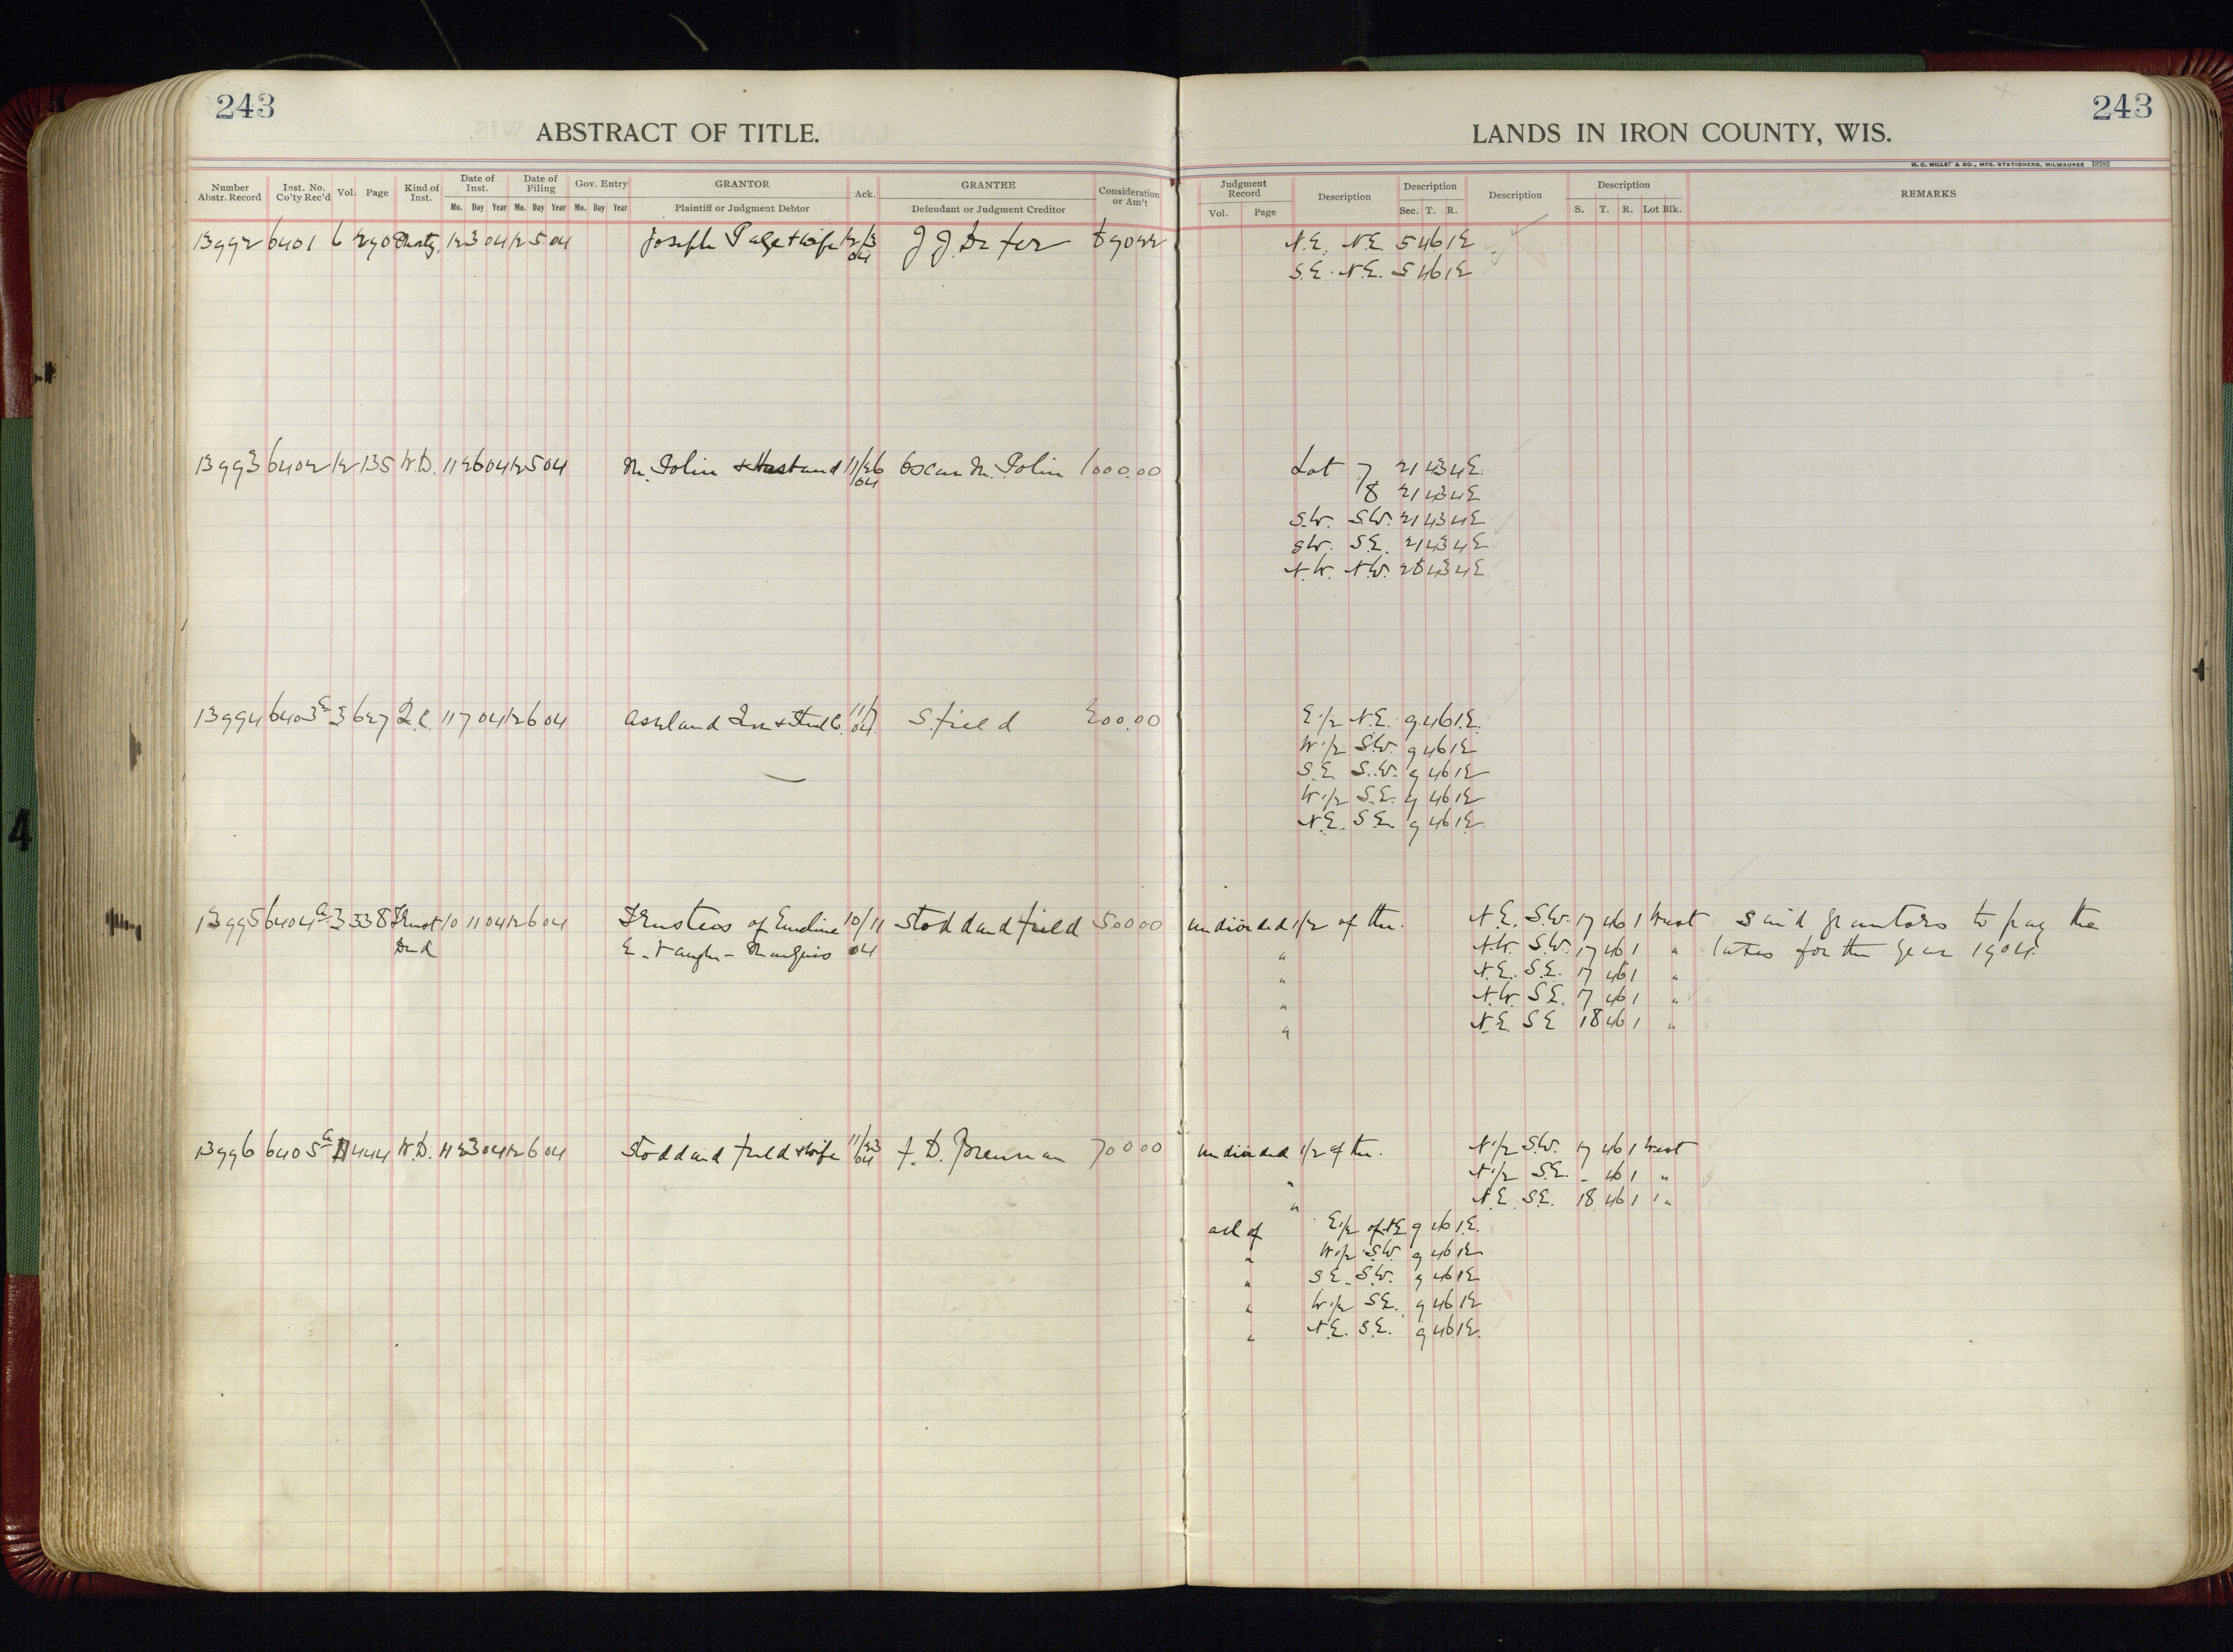 243
ABSTRACT OF TITLE.
LANDS IN IRON COUNTY, WIS.
243
H. C. MILLER & CO., MFG. STATIONERS, MILWAUKEE 19282
Number Abstr. Record Inst. No. Co'ty Rec'd Vol. Page Kind of Inst. Date of Inst. Mo. Day Year Date of Filing Mo. Day Year Gov. Entry Mo. Day Year GRANTOR Plaintiff or Judgment Debtor Ack. GRANTEE Defendant or Judgment Creditor Consideration or Am't
Judgment Record Vol. Page Description Description Sec. T. R. Description Description S. T. R. Lot Blk. REMARKS
13992 6401 6 290 12 3 04 12 5 04 Joseph Page & Wife 12/3 04 J. J. N.E. N.E. 5 46 1E
S.E. N.E. 5 46 1E
13993 6402 12 135 W.D. 11 26 04 12 5 04 M. Polin & Husband 11/26 04 Oscar M. Polin 1000.00 Lot 7 21 43 4E
8 21 43 4E
S.W. S.W. 21 43 4E
S.W. S.E. 21 43 4E
N.W. N.W. 28 43 4E
13994 6403 3 627 Q.C. 11 7 04 12 6 04 Ashland Iron & Steel Co. 11/7 04 S. Field 200.00 E.1/2 N.E. 9 46 1E.
W.1/2 S.W. 9 46 1E
S.E. S.W. 9 46 1E
W.1/2 S.E. 9 46 1E
N.E. S.E. 9 46 1E
13995 6404 a 3 338 Trust 10 11 04 12 6 04 Trustees of Emeline 10/11 Stoddard Field 500 00 undivided 1/2 of the. N.E. S.W. 17 46 1 West Said grantors to pay the
Deed E. Vaughn - 04 " N.W. S.W. 17 46 1 " taxes for the year 1904.
" N.E. S.E. 17 46 1 "
" N.W. S.E. 17 46 1 "
" N.E. S.E 18 46 1 "
13996 6405 a 11 444 W.D. 11 23 04 12 6 04 Stoddard Field & Wife 11/23 04 F. D. Brennan 700 00 undivided 1/2 of the. N.1/2 S.W. 17 46 1 West
" N.1/2 S.E. - 46 1 "
" N.E. S.E. 18 46 1 "
all of E.1/2 of N.E. 9 46 1E.
" W.1/2 S.W. 9 46 1E
" S.E. S.W. 9 46 1E
" W.1/2 S.E. 9 46 1E
" N.E. S.E. 9 46 1E.
4